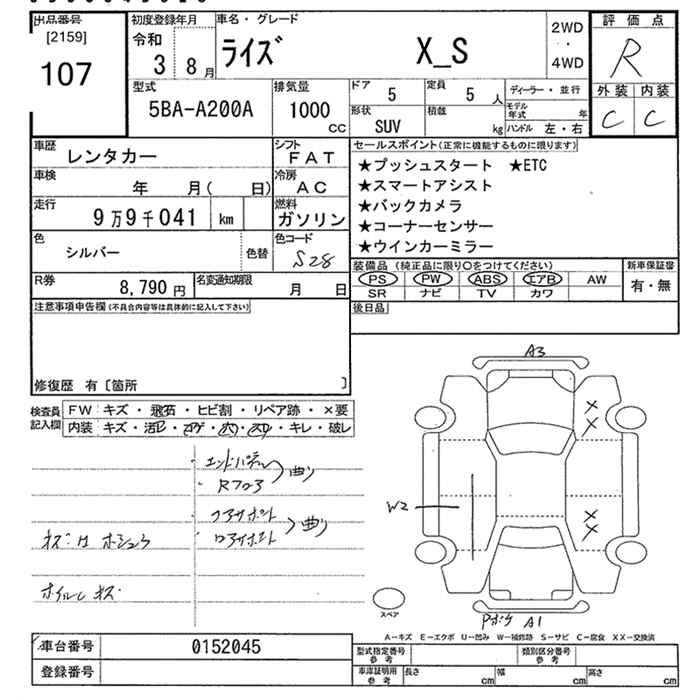 出品番号
[2159]
107
初度登録年月
令和
3 8月
車名・グレード
ライズ X_S
2WD
・
4WD
評価点
R
外装 内装
C C
型式
5BA-A200A
排気量
1000
CC
ドア
5
定員
5 人
ディーラー・並行
形状
SUV
積載
kg
モデル年式 年
ハンドル 左・右
車歴
レンタカー
シフト
FAT
車検
年 月( 日)
冷房
AC
走行
9万9千041 km
燃料
ガソリン
色
シルバー
色替
色コード
S28
R券
8,790 円
名変通知期限
月 日
セールスポイント(正常に機能するものに限ります)
★プッシュスタート ★ETC
★スマートアシスト
★バックカメラ
★コーナーセンサー
★ウインカーミラー
装備品 (純正品に限り〇をつけてください)
新車保証書
PS PW ABS エアB AW
有・無
SR ナビ TV カワ
後日品
注意事項申告欄(不具合内容等は具体的に記入して下さい)
修復歴 有〔箇所 〕
検査員記入欄
FW キズ・飛石・ヒビ割・リペア跡・×要
内装 キズ・汚レ・コゲ・穴・スレ・キレ・破レ
エンドパネル
R フロア
曲り
コアサポート
曲り
ホイルキズ
A3
W2
A1
スペア
A-キズ E-エクボ U-凹み W-補修跡 S-サビ C-腐食 XX-交換済
車台番号 0152045
登録番号
型式指定番号
参考
類別区分番号
参考
車庫証明用
参考
長さ cm
幅 cm
高さ cm